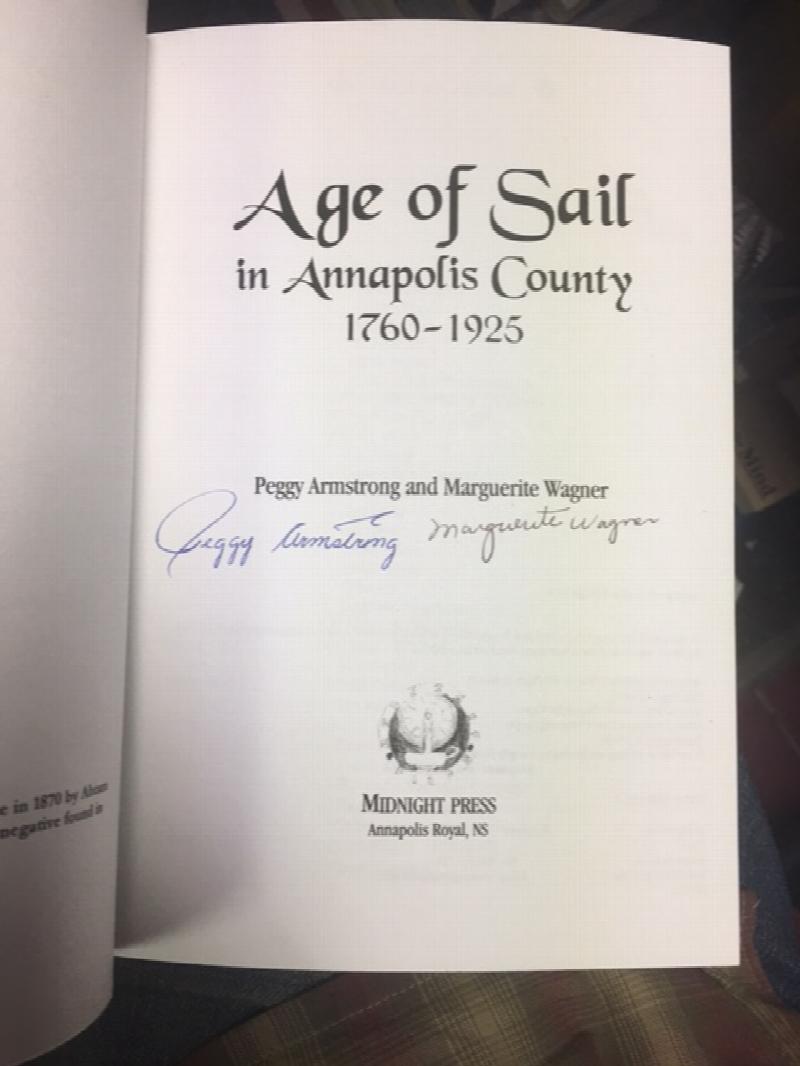 Age of Sail
in Annapolis County
1760–1925
Peggy Armstrong and Marguerite Wagner
Peggy Armstrong Marguerite Wagner
MIDNIGHT PRESS
Annapolis Royal, NS
e in 1870 by
negative found in
Mind